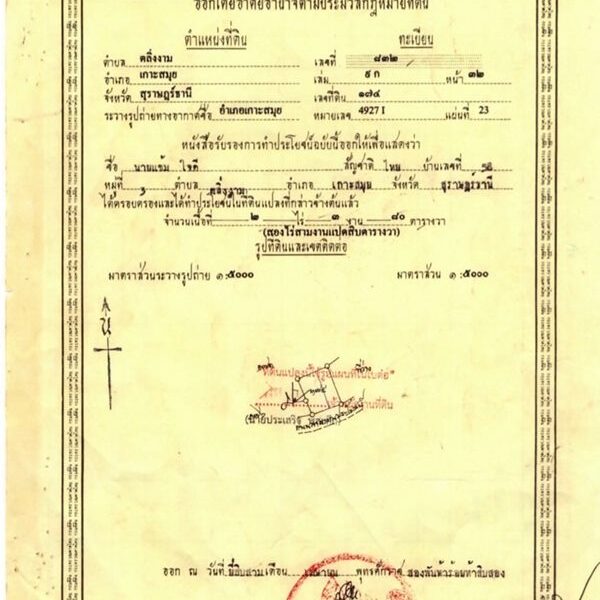 ออกโดยอาศัยอำนาจตามประมวลกฎหมายที่ดิน
ตำแหน่งที่ดิน ทะเบียน
ตำบล ตลิ่งงาม เลขที่ ๘๓๒
อำเภอ เกาะสมุย เล่ม ๙ ก หน้า ๓๒
จังหวัด สุราษฎร์ธานี เลขที่ดิน ๑๗๔
ระวางรูปถ่ายทางอากาศชื่อ อำเภอเกาะสมุย หมายเลข 4927 I แผ่นที่ 23
หนังสือรับรองการทำประโยชน์ฉบับนี้ออกให้เพื่อแสดงว่า
ชื่อ นายแช้ม ใจดี สัญชาติ ไทย บ้านเลขที่
หมู่ที่ 3 ตำบล ตลิ่งงาม อำเภอ เกาะสมุย จังหวัด สุราษฎร์ธานี
ได้ครอบครองและได้ทำประโยชน์ในที่ดินแปลงที่กล่าวข้างต้นแล้ว
จำนวนเนื้อที่ ๒ ไร่ ๓ งาน ๘๐ ตารางวา
(สองไร่สามงานแปดสิบตารางวา)
รูปที่ดินและเขตติดต่อ
มาตราส่วนระวางรูปถ่าย ๑:๕๐๐๐ มาตราส่วน ๑:๕๐๐๐
น
ที่ดินแปลงนี้ใช้รูปแผนที่ใบต่อ"
(นายประเสริฐ
ออก ณ วันที่ ยี่สิบสาม เดือน เมษายน พุทธศักราช สองพันห้าร้อยห้าสิบสอง